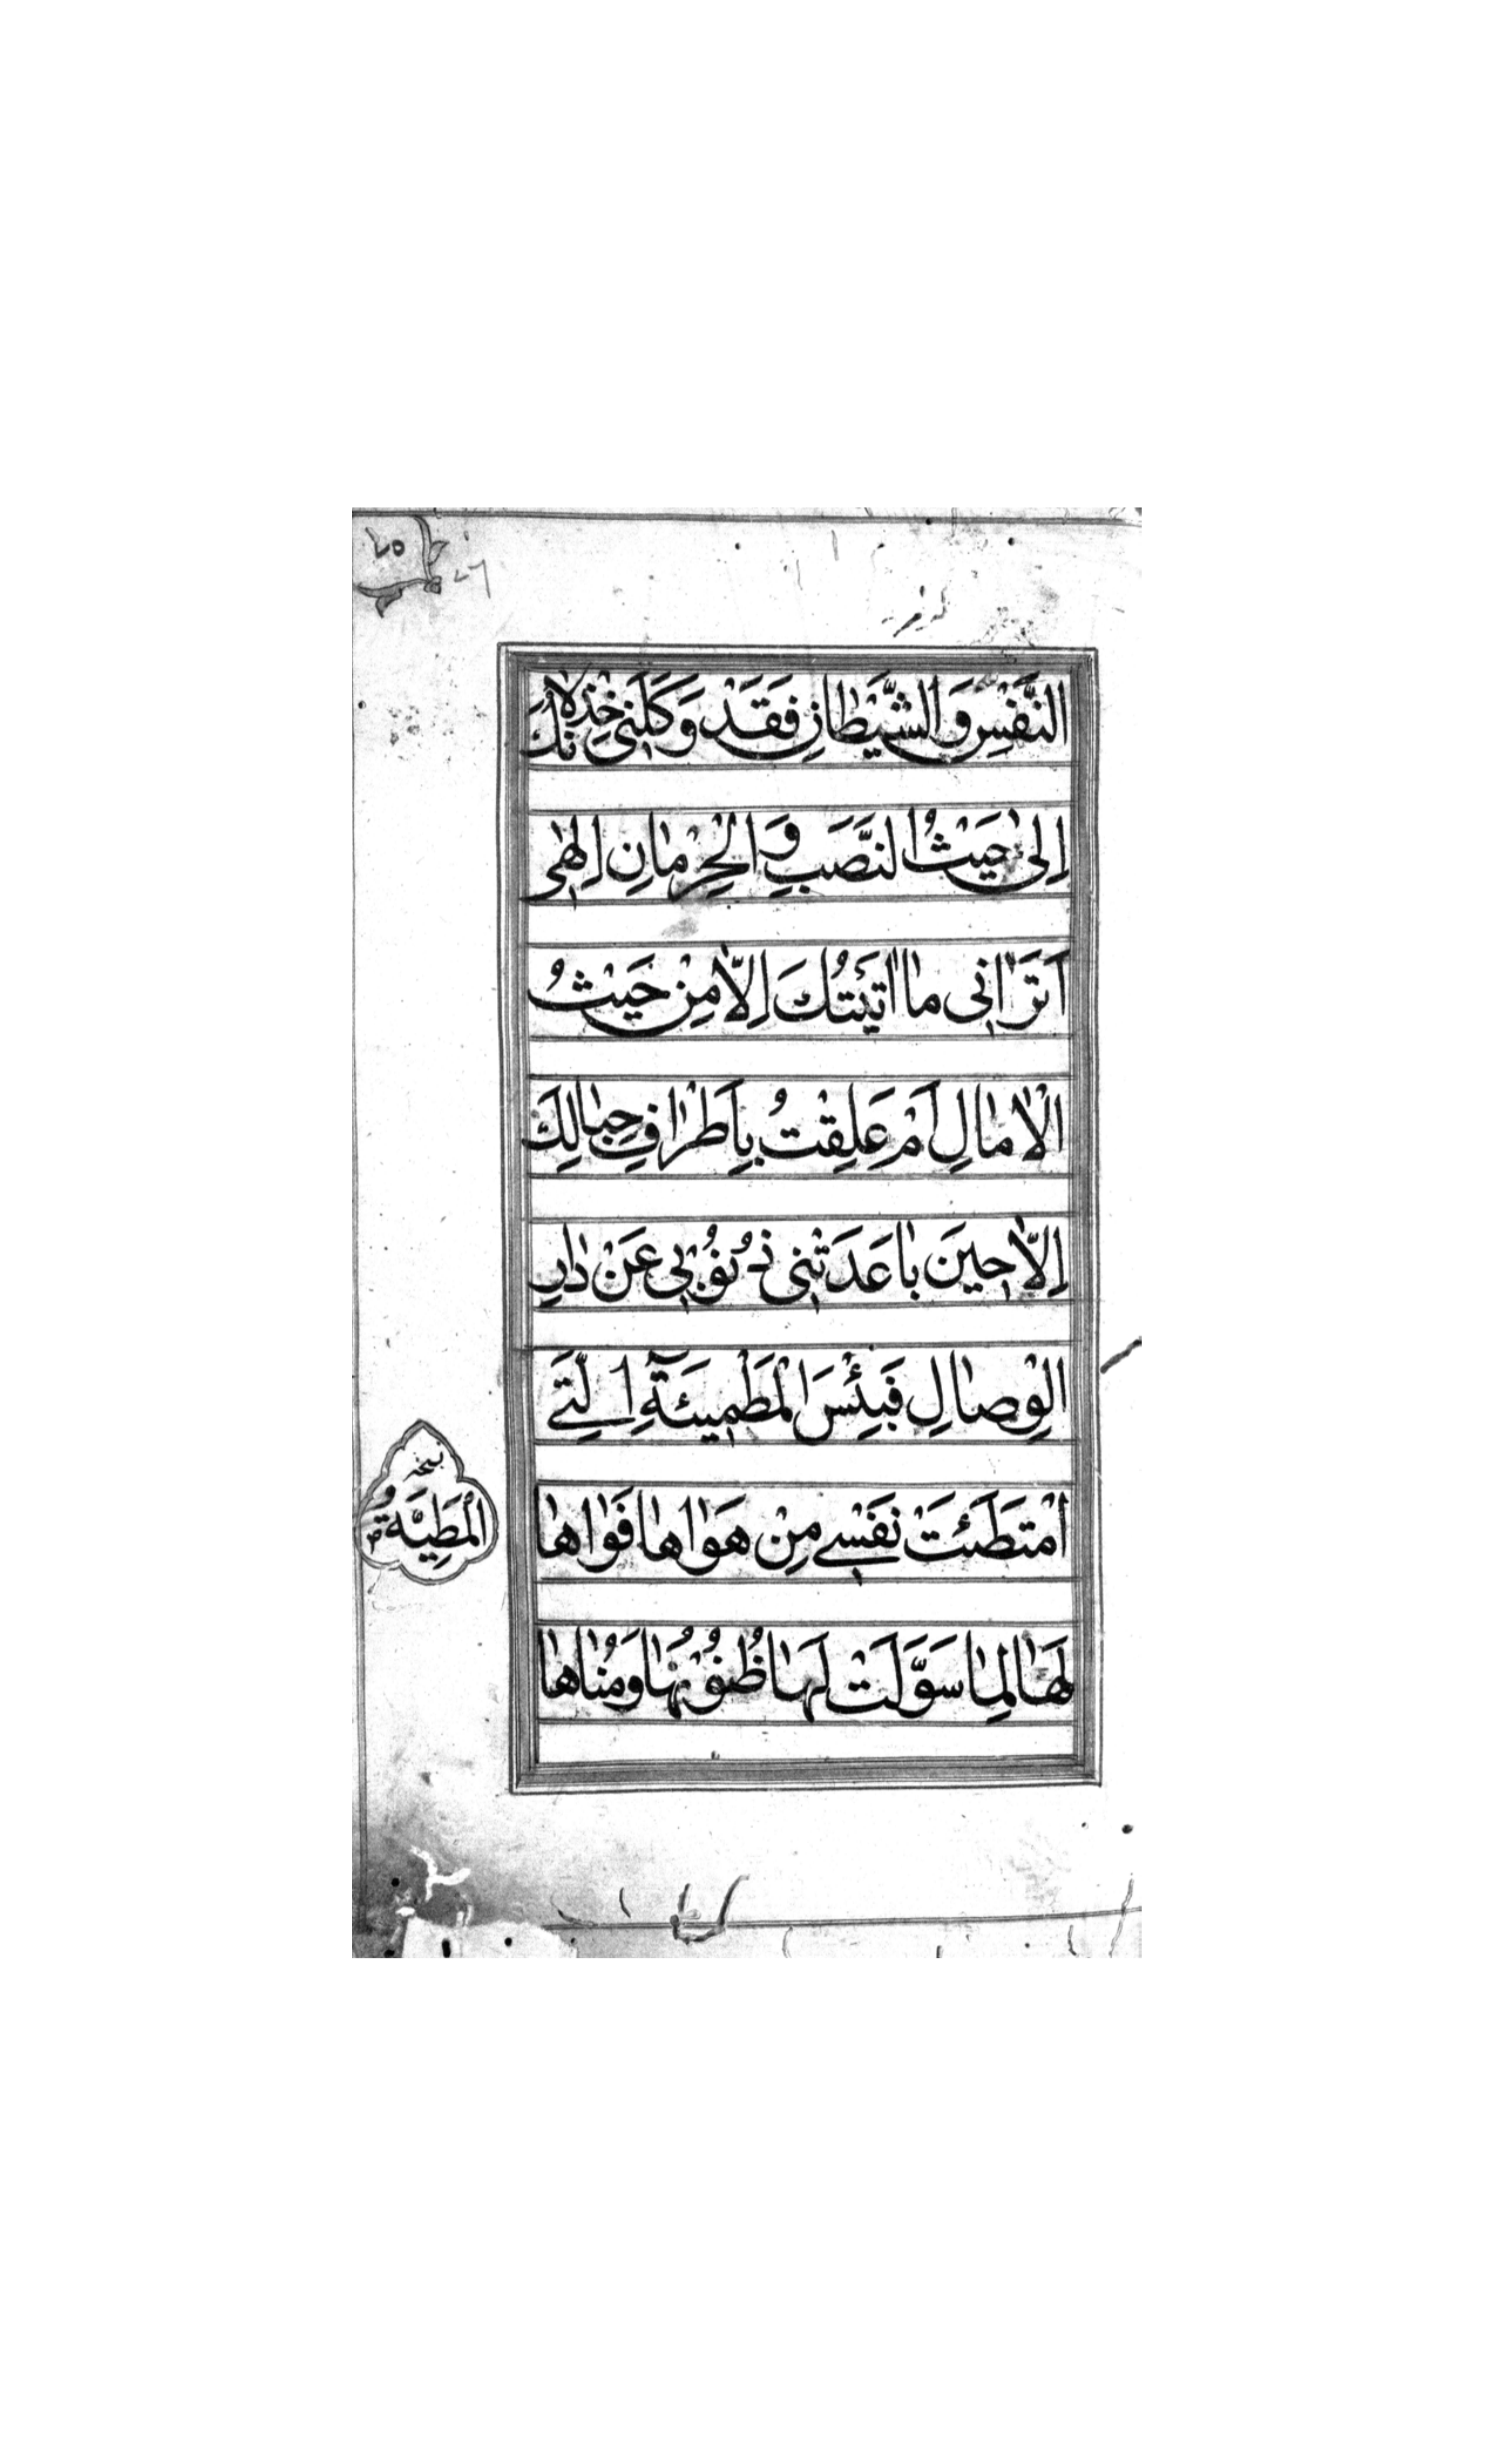 ٧٥
٧٦
النَّفْسِ وَالشَّيْطَانِ فَقَدْ وَكَلَنِي خِذْلَانُكَ
اِلىٰ حَيْثُ النَّصَبِ وَالْحِرْمَانِ اِلٰهِى
اَتَرَانِى مَا اَتَيْتُكَ اِلَّا مِنْ حَيْثُ
الْاٰمَالِ اَمْ عَلِقْتُ بِاَطْرَافِ حِبَالِكَ
اِلَّا حِينَ بَاعَدَتْنِى ذُنُوبِى عَنْ دَارِ
الْوِصَالِ فَبِئْسَ الْمَطْمِيئَةِ الَّتِے
امْتَطَئَتْ نَفْسِے مِنْ هَوَاهَا فَوَاهَا
لَهَا لِمَا سَوَّلَتْ لَهَا ظُنُونُهَا وَمُنَاهَا
نسخه
الْمَطِيَّةُ